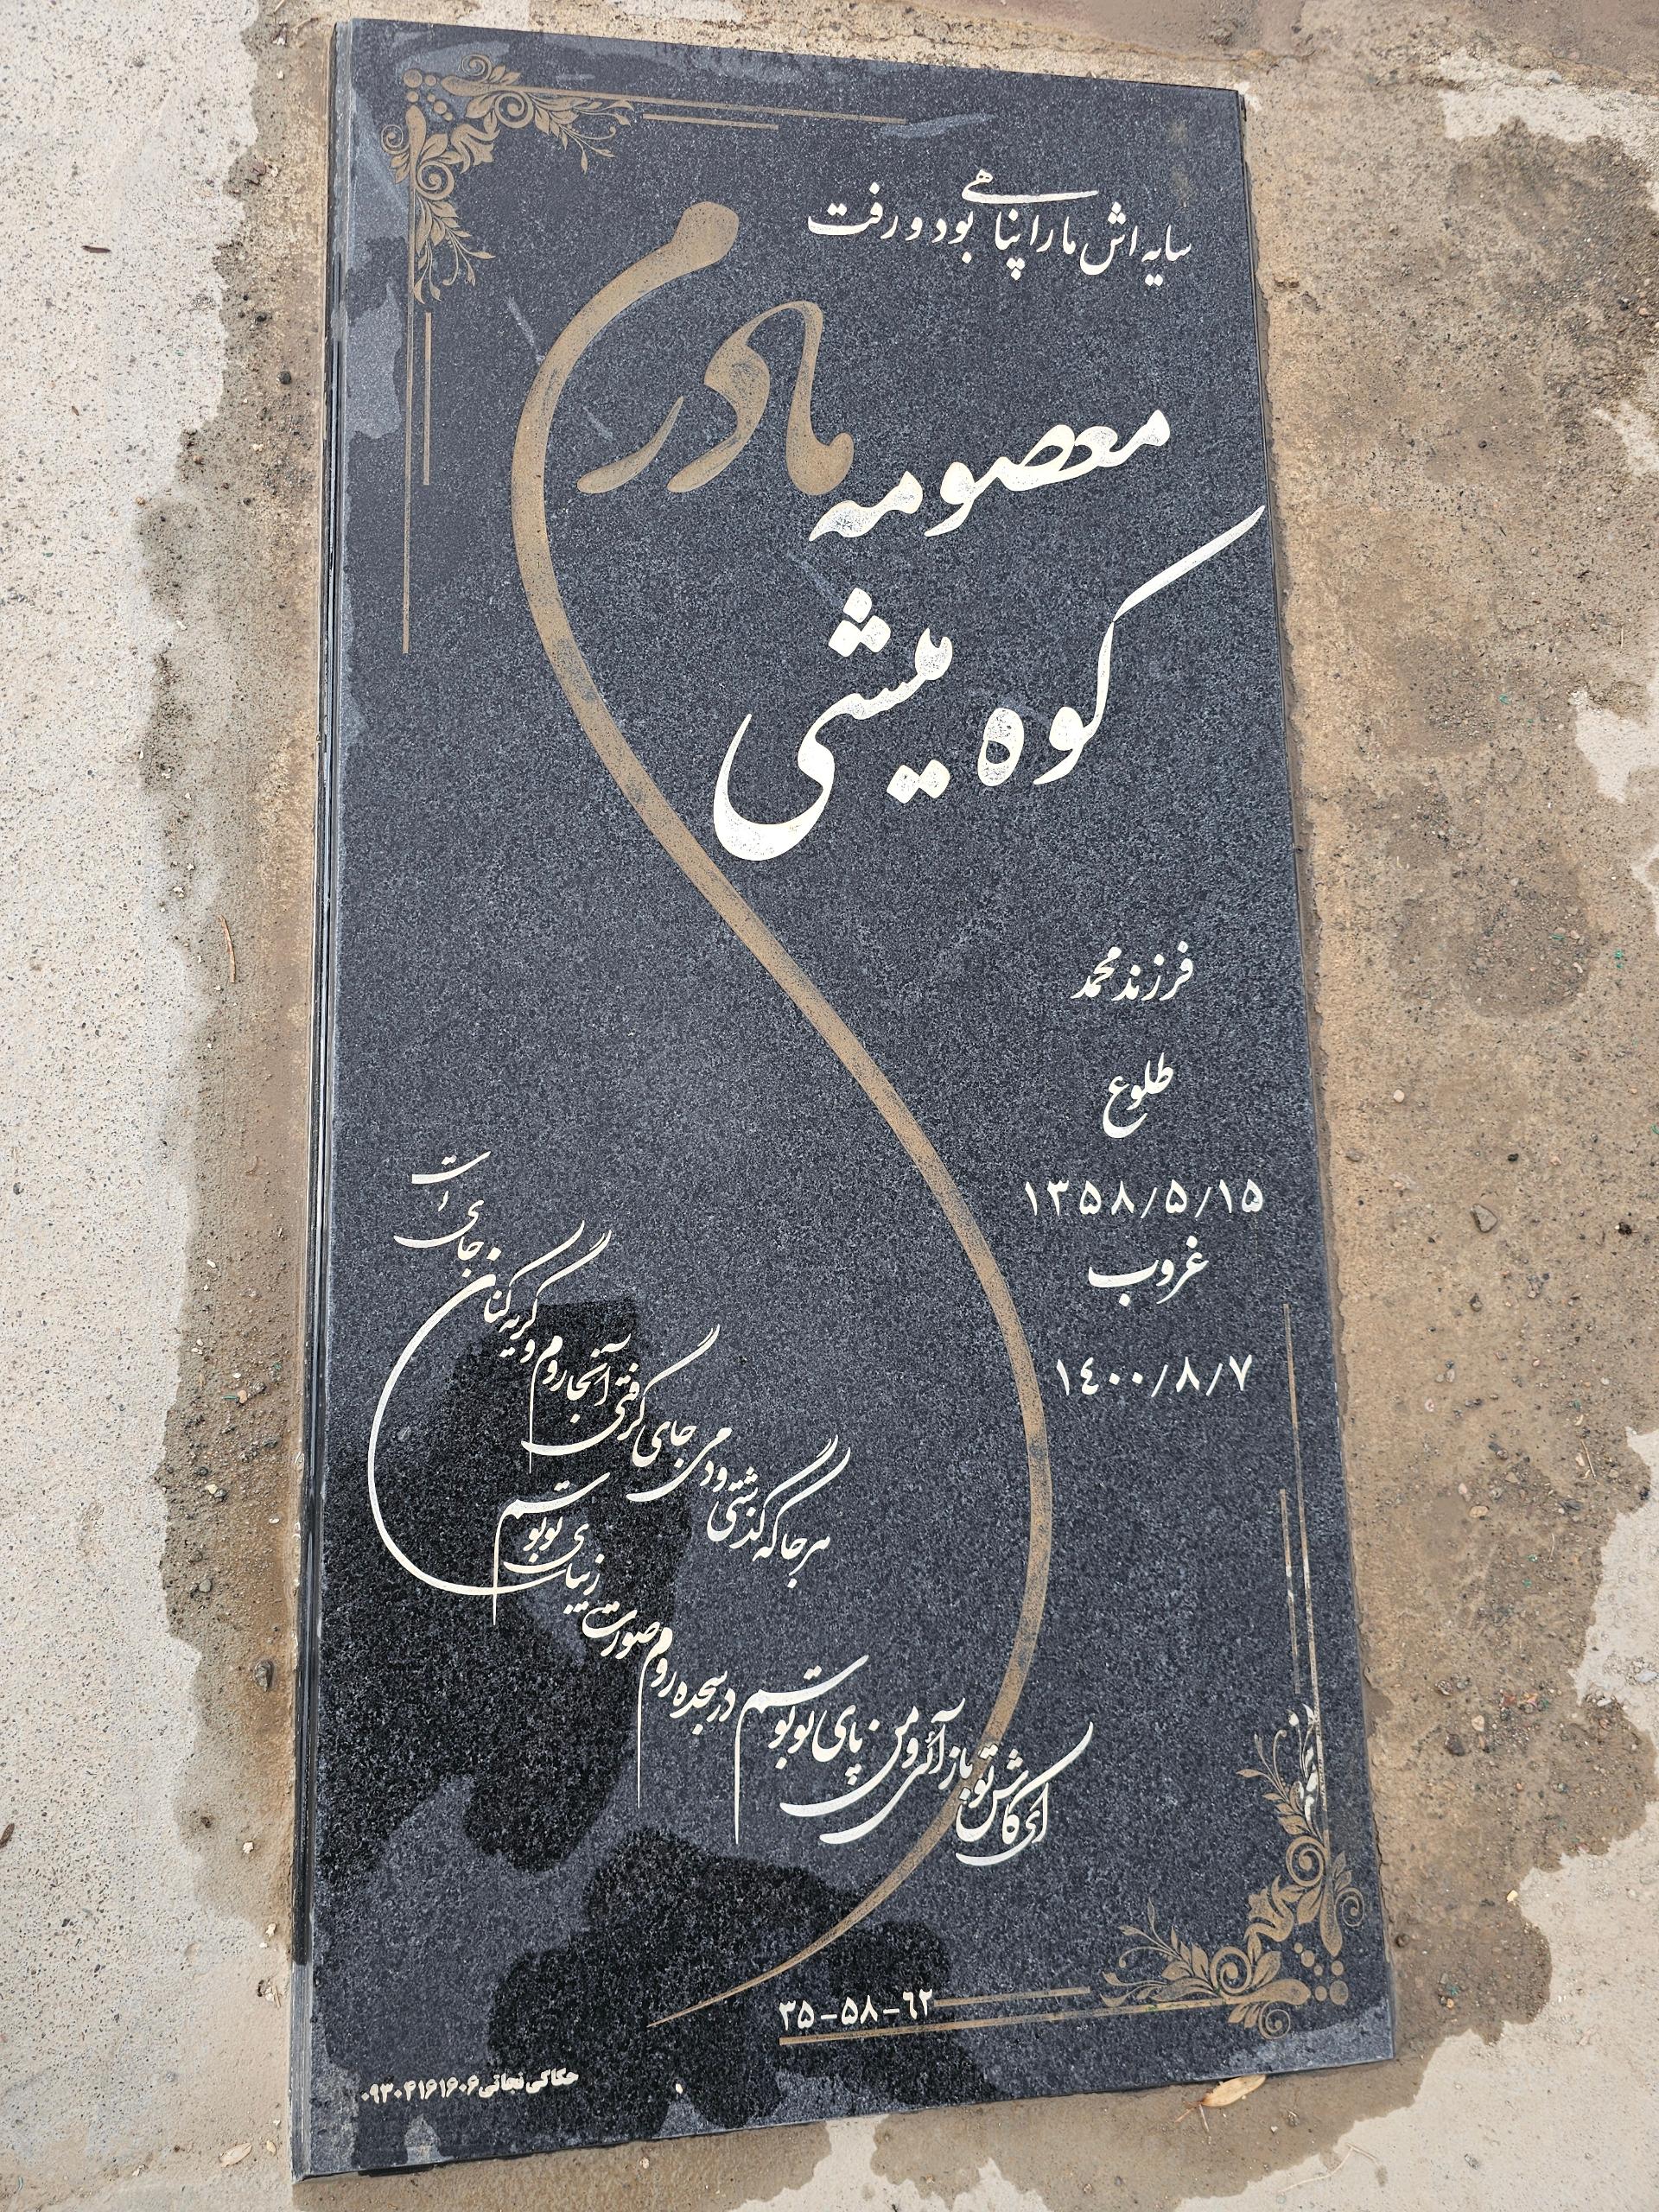 سایه اش ما را پناهی بود و رفت
مادرم
معصومه
کوه پیشی
فرزند محمد
طلوع
۱۳۵۸/۵/۱۵
غروب
۱۴۰۰/۸/۷
هر جا که گذشتی و دمی جای گرفتی آنجا روم و گریه کنان جای تو بوسم
ای کاش تو باز آئی و من پای تو بوسم در سجده روم صورت زیبای تو بوسم
۳۵-۵۸-۶۲
حکاکی نجاتی ۰۹۳۰۴۱۶۱۶۰۶